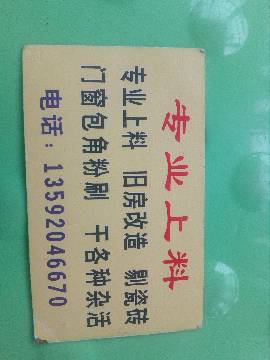 专业上料
专业上料 旧房改造 剔瓷砖
门窗包角粉刷 干各种杂活
电话：13592046670